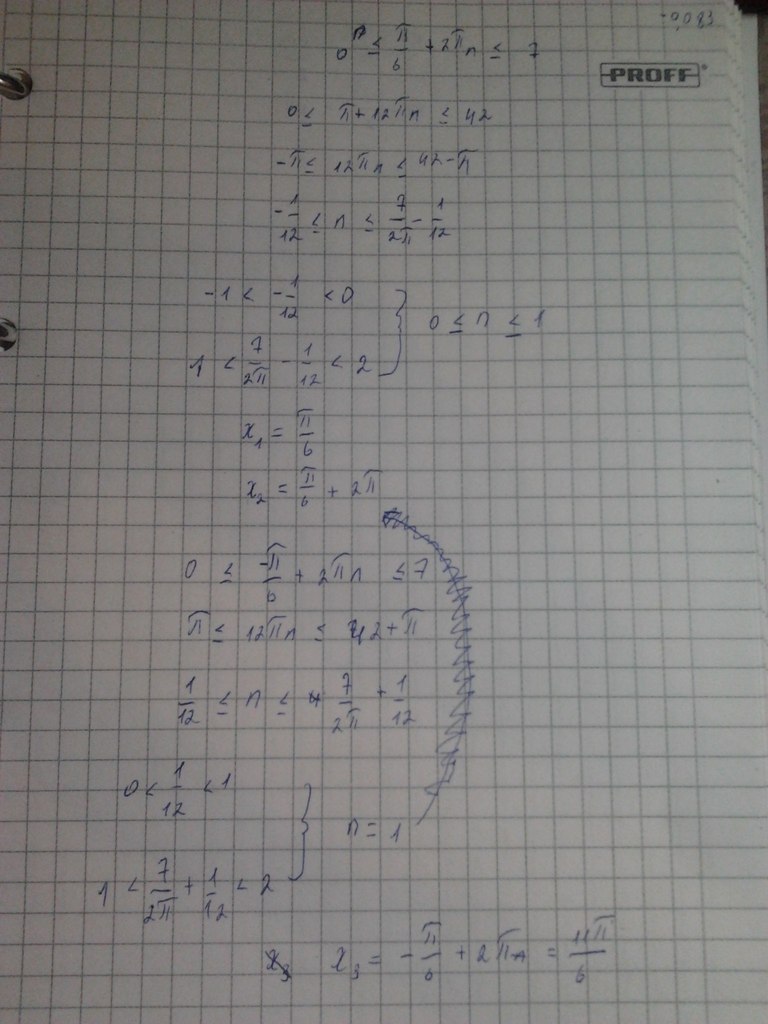 -9,083
0 ≤ π/6 + 2πn ≤ 7
PROFF®
0 ≤ π + 12πn ≤ 42
-π ≤ 12πn ≤ 42 - π
-1/12 ≤ n ≤ 7/2π - 1/12
-1 < -1/12 < 0
0 ≤ n ≤ 1
1 < 7/2π - 1/12 < 2
x₁ = π/6
x₂ = π/6 + 2π
0 ≤ -π/6 + 2πn ≤ 7
π ≤ 12πn ≤ 42 + π
1/12 ≤ n ≤ 7/2π + 1/12
0 < 1/12 < 1
n = 1
1 < 7/2π + 1/12 < 2
x₃ x₃ = -π/6 + 2πn = 11π/6